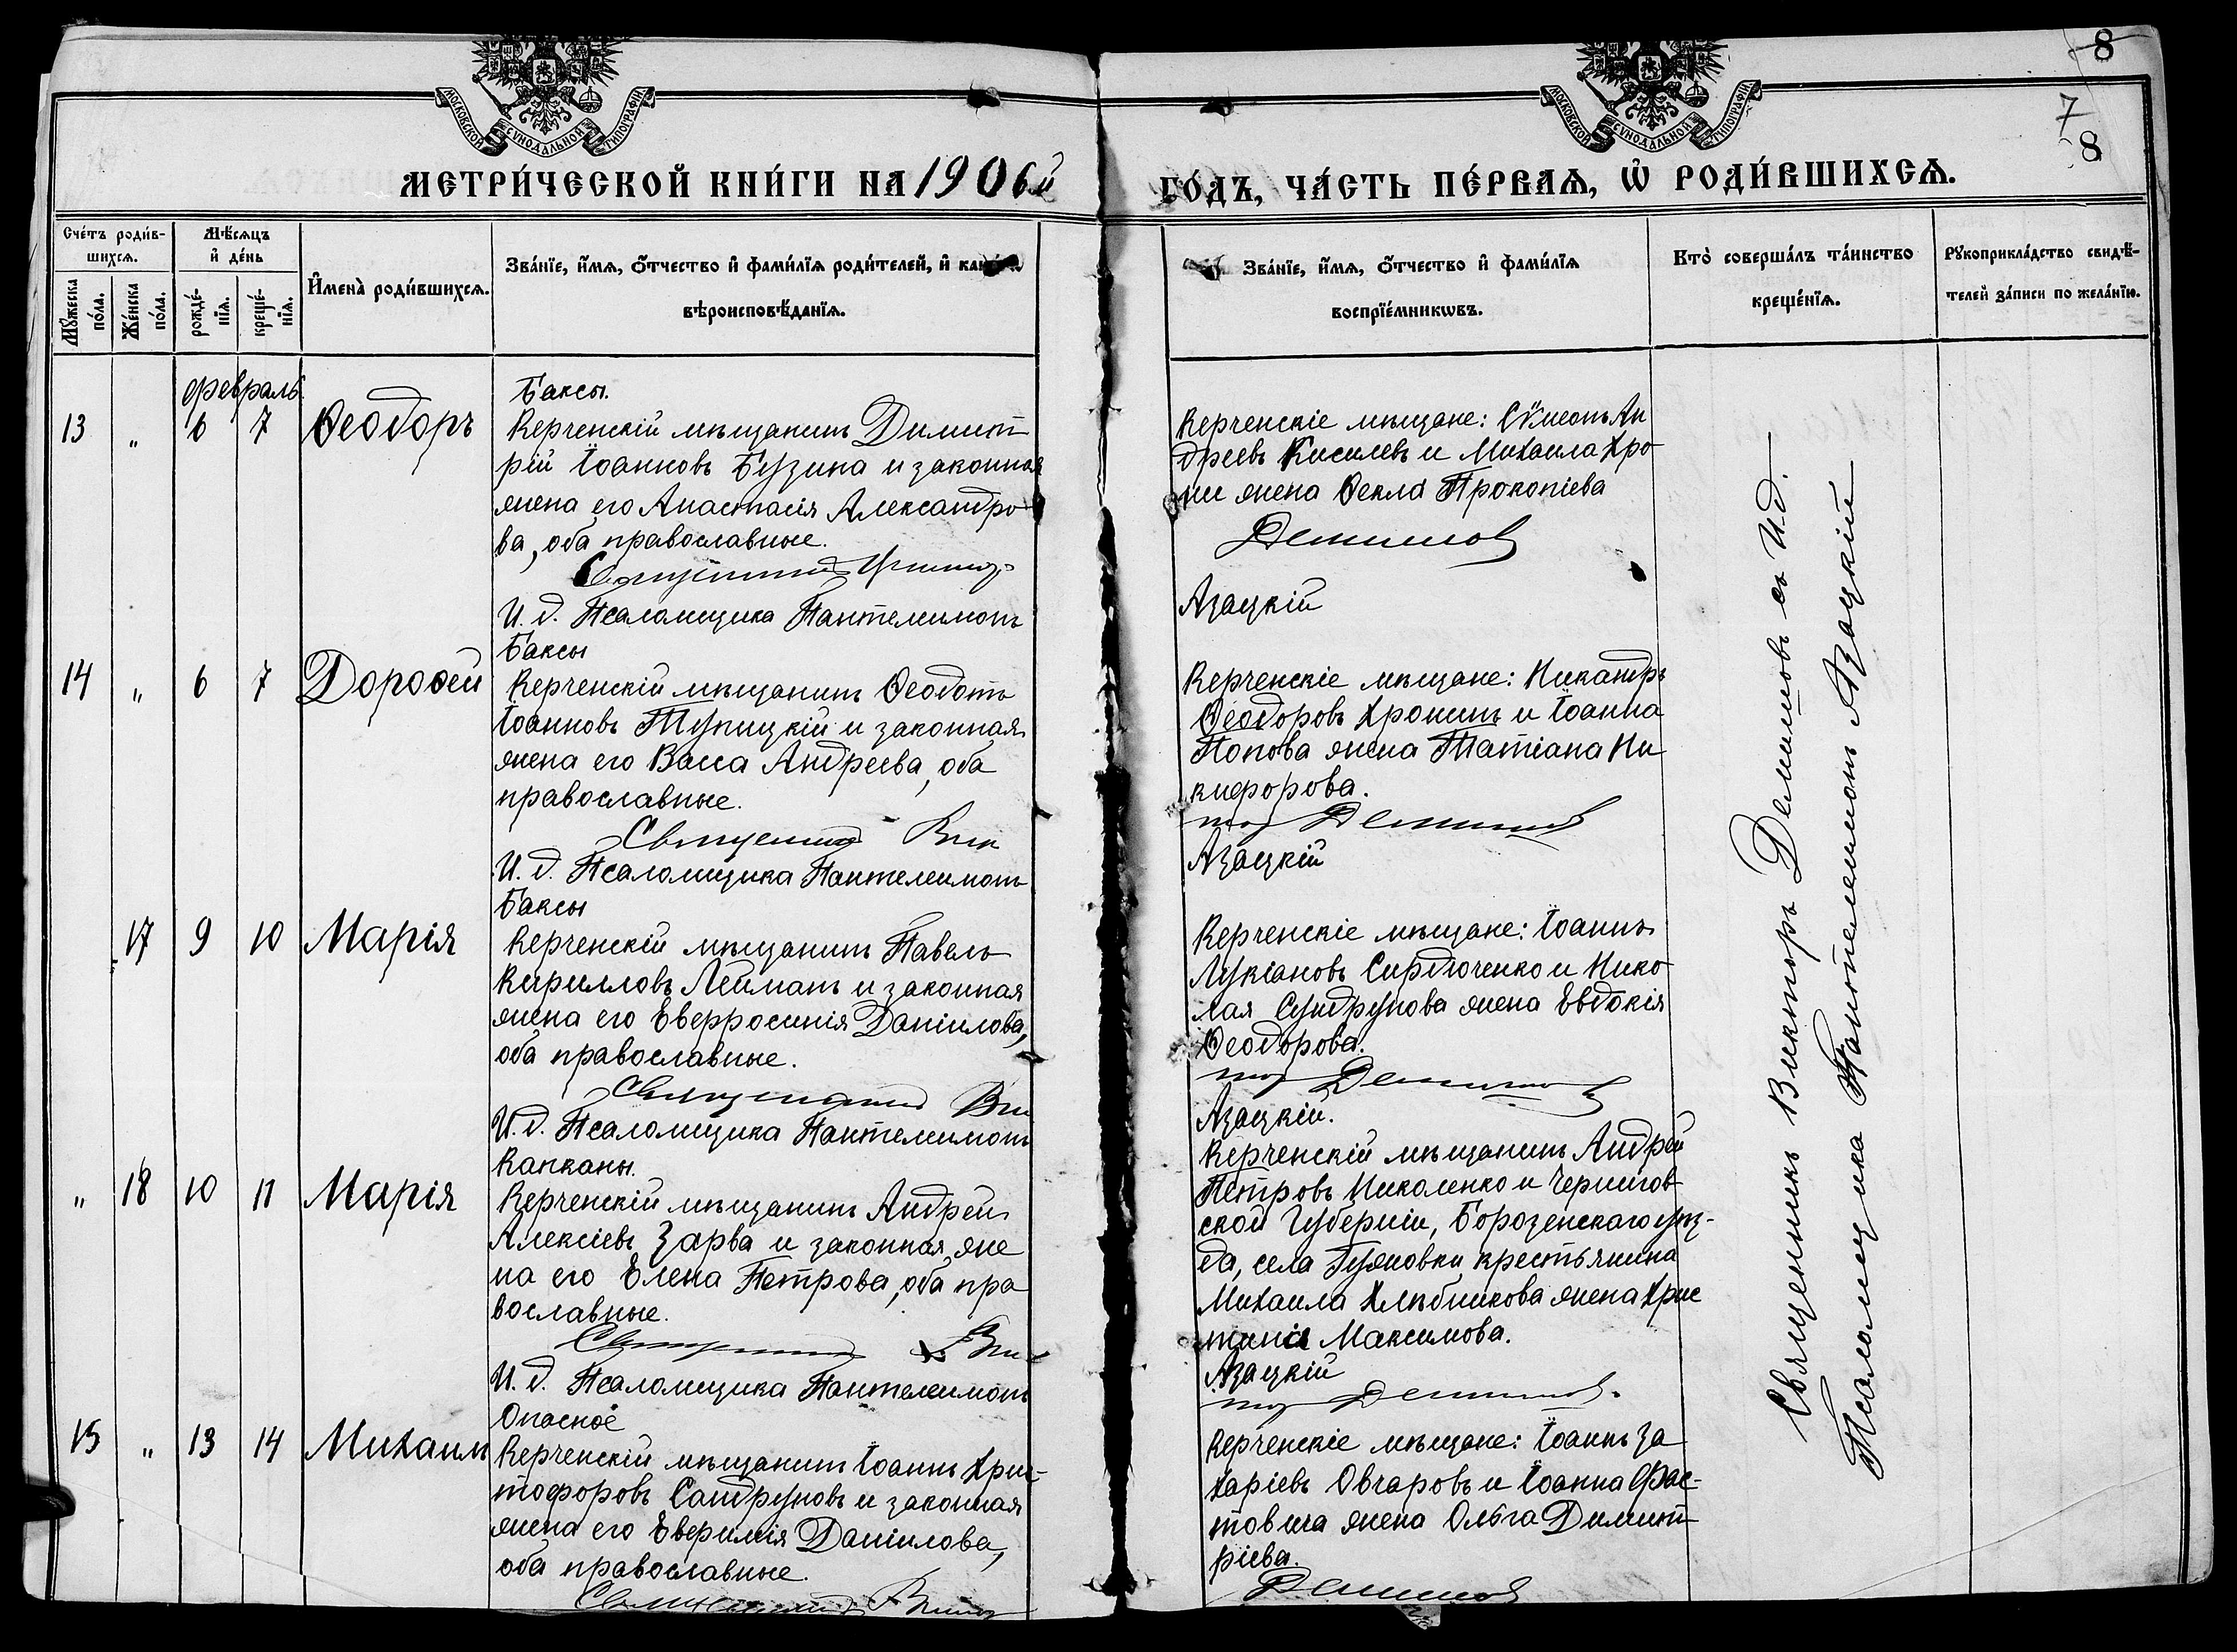 8
7
8
МОСКОВСКОЙ СѴНОДАЛЬНОЙ ТИПОГРАФІИ
МОСКОВСКОЙ СѴНОДАЛЬНОЙ ТИПОГРАФІИ
МЕТРИ́ЧЕСКОЙ КНИ́ГИ НА 1906й
ГО́ДЪ, ЧА́СТЬ ПЕ́РВАѦ, Ѡ҆ РОДИ́ВШИХСѦ.
Сче́тъ роди́в-
шихсѧ.
Мꙋ́жеска по́ла.
Же́нска по́ла.
Мѣ́сѧцъ
и҆ де́нь
рожде́-
нїѧ.
креще́-
нїѧ.
И҆мена̀ роди́вшихсѧ.
Зва́нїе, и҆́мѧ, ѻ҆́тчество и҆ фами́лїѧ роди́телей, и҆
вѣроисповѣ́данїѧ.
Зва́нїе, и҆́мѧ, ѻ҆́тчество и҆ фами́лїѧ
воспрїе́мникѡвъ.
Кто̀ соверша́лъ та́инство
креще́нїѧ.
Рꙋкоприкла́дство свидѣ́-
телей за́писи по жела́нїю.
февраль.
13 „ 6 7 Ѳеодоръ
Баксы.
Керченскій мѣщанинъ Димит
рій Іоанновъ Бузина и законная
жена его Анастасія Александро
ва, оба православные.
И. д. Псаломщика Пантелеимонъ
Керченскіе мѣщане: Сѵмеонъ Ан
дреевъ Киселевъ и Михаила Хро
жена Ѳекла Прокопіева
Демишовъ
Азацкій
14 „ 6 7 Дороѳей
Баксы
Керченскій мѣщанинъ Ѳеодотъ
Іоанновъ Тупицкій и законная
жена его Васса Андреева, оба
православные.
Священникъ Вик
И. д. Псаломщика Пантелеимонъ
Керченскіе мѣщане: Никандръ
Ѳеодоровъ Хронинъ и Іоанна
Попова жена Татіана Ни
кифорова.
торъ Демишовъ
Азацкій
17 9 10 Марія
Баксы
Керченскій мѣщанинъ Павелъ
Кирилловъ Лейманъ и законная
жена его Евфросинія Даніилова,
оба православные.
Священникъ Вик
И. д. Псаломщика Пантелеимонъ
Керченскіе мѣщане: Іоаннъ
Лукіановъ Сирдюченко и Нико
лая Сундрукова жена Евдокія
Ѳеодорова.
торъ Демишовъ
Азацкій.
„ 18 10 11 Марія
Капканы.
Керченскій мѣщанинъ Андрей
Алексіевъ Зарва и законная же
на его Елена Петрова, оба пра
вославные.
Священникъ Вик
И. д. Псаломщика Пантелеимонъ
Керченскій мѣщанинъ Андрей
Петровъ Николенко и Чернигов
ской Губерніи, Борозенскаго уѣз-
да, села крестьянина
Михаила Хлѣбникова жена Хрис
тинія Максимова.
Азацкій
торъ Демишовъ.
15 „ 13 14 Михаилъ
Опасное
Керченскій мѣщанинъ Іоаннъ Хрис-
тофоровъ Сандруковъ и законная
жена его Евфимія Даніилова,
оба православные.
Священникъ Вик
Керченскіе мѣщане: Іоаннъ За
харіевъ Овчаровъ и Іоанна Фас-
товца жена Ольга Димит
ріева.
Демишовъ
Священникъ Викторъ Демишовъ съ И.д.
Псаломщика Пантелеимонъ Азацкій